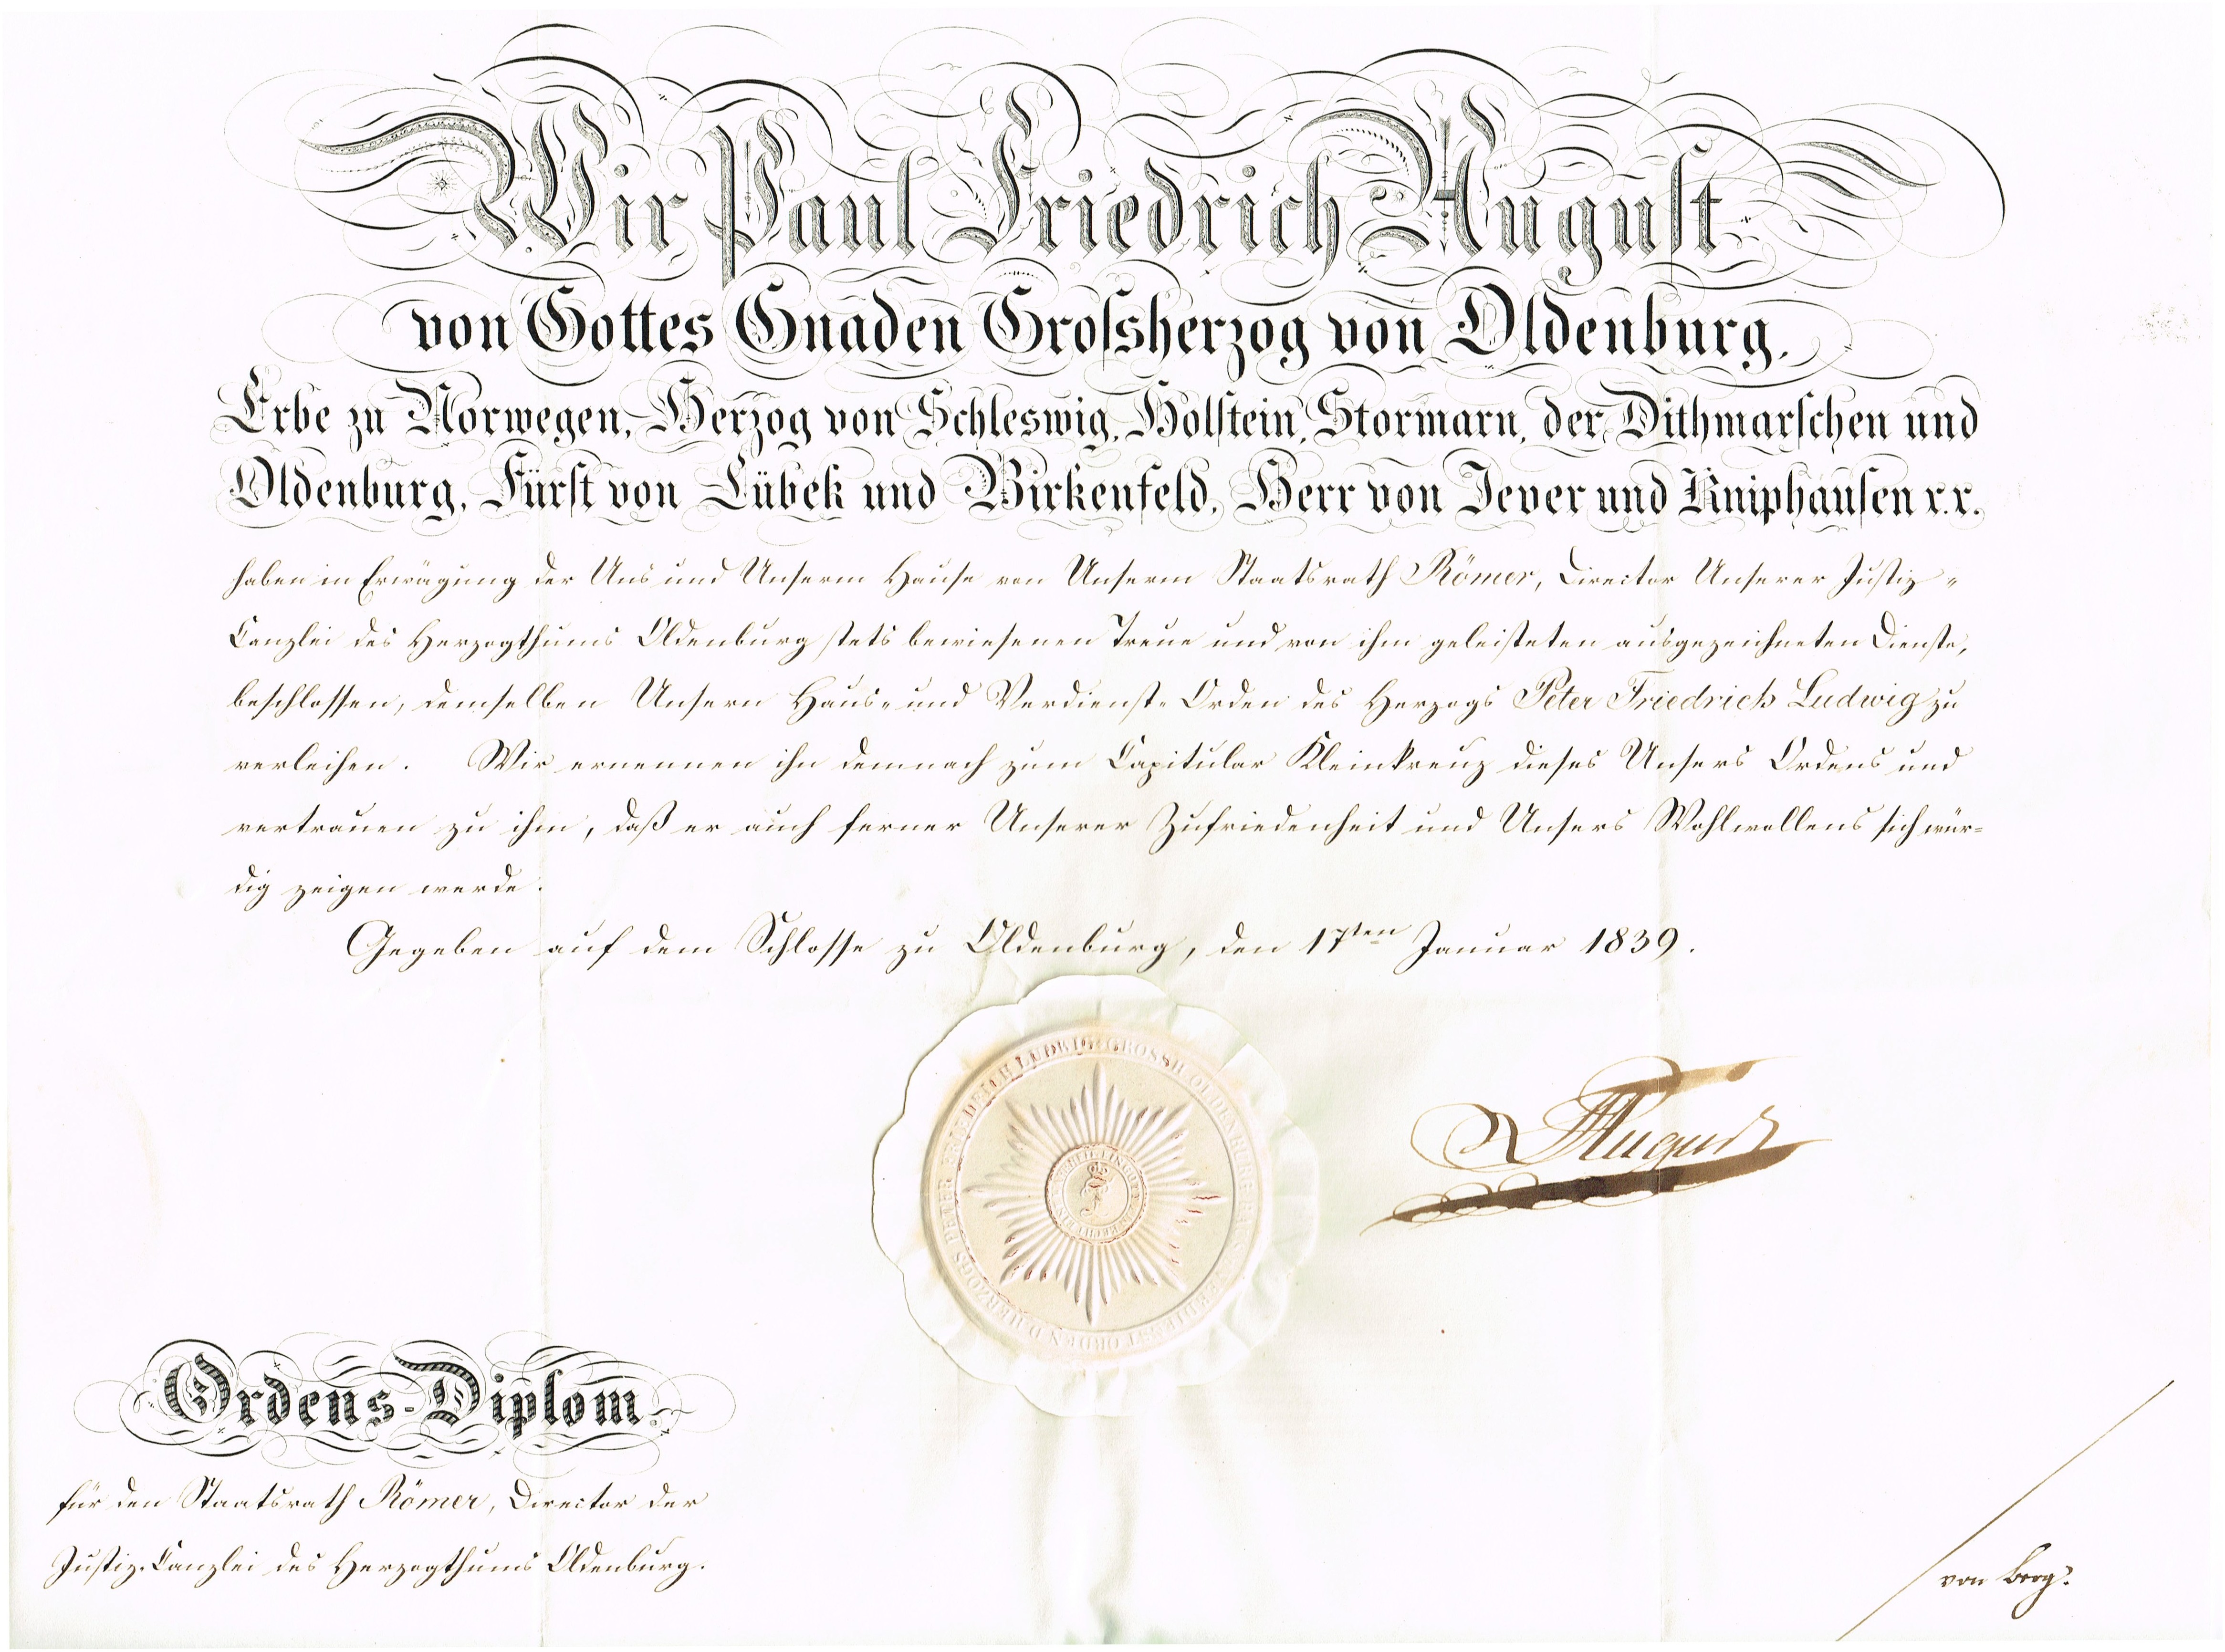 Wir Paul Friedrich August
von Gottes Gnaden Grossherzog von Oldenburg,
Erbe zu Norwegen, Herzog von Schleswig, Holstein, Stormarn, der Dithmarschen und
Oldenburg, Fürst von Lübek und Birkenfeld, Herr von Jever und Kniphausen r. r.
haben in Erwägung der Uns und Unserm Hause von Unserm Staatsrath Römer, Director Unserer Justiz-
Canzlei des Herzogthums Oldenburg stets bewiesenen Treue und von ihm geleisteten ausgezeichneten Dienste,
beschlossen, demselben Unsern Haus- und Verdienst-Orden des Herzogs Peter Friedrich Ludwig zu
verleihen. Wir ernennen ihn demnach zum Capitular Kleinkreuz dieses Unsers Ordens und
vertrauen zu ihm, daß er auch ferner Unserer Zufriedenheit und Unsers Wohlwollens sich wür-
dig zeigen werde.
Gegeben auf dem Schlosse zu Oldenburg, den 17ten Januar 1839.
GROSSH OLDENBURG HAUS U VERDIENST ORDEN D HERZOGS PETER FRIEDRICH LUDWIG
August
Ordens-Diplom
für den Staatsrath Römer, Director der
Justiz-Canzlei des Herzogthums Oldenburg.
von Berg.